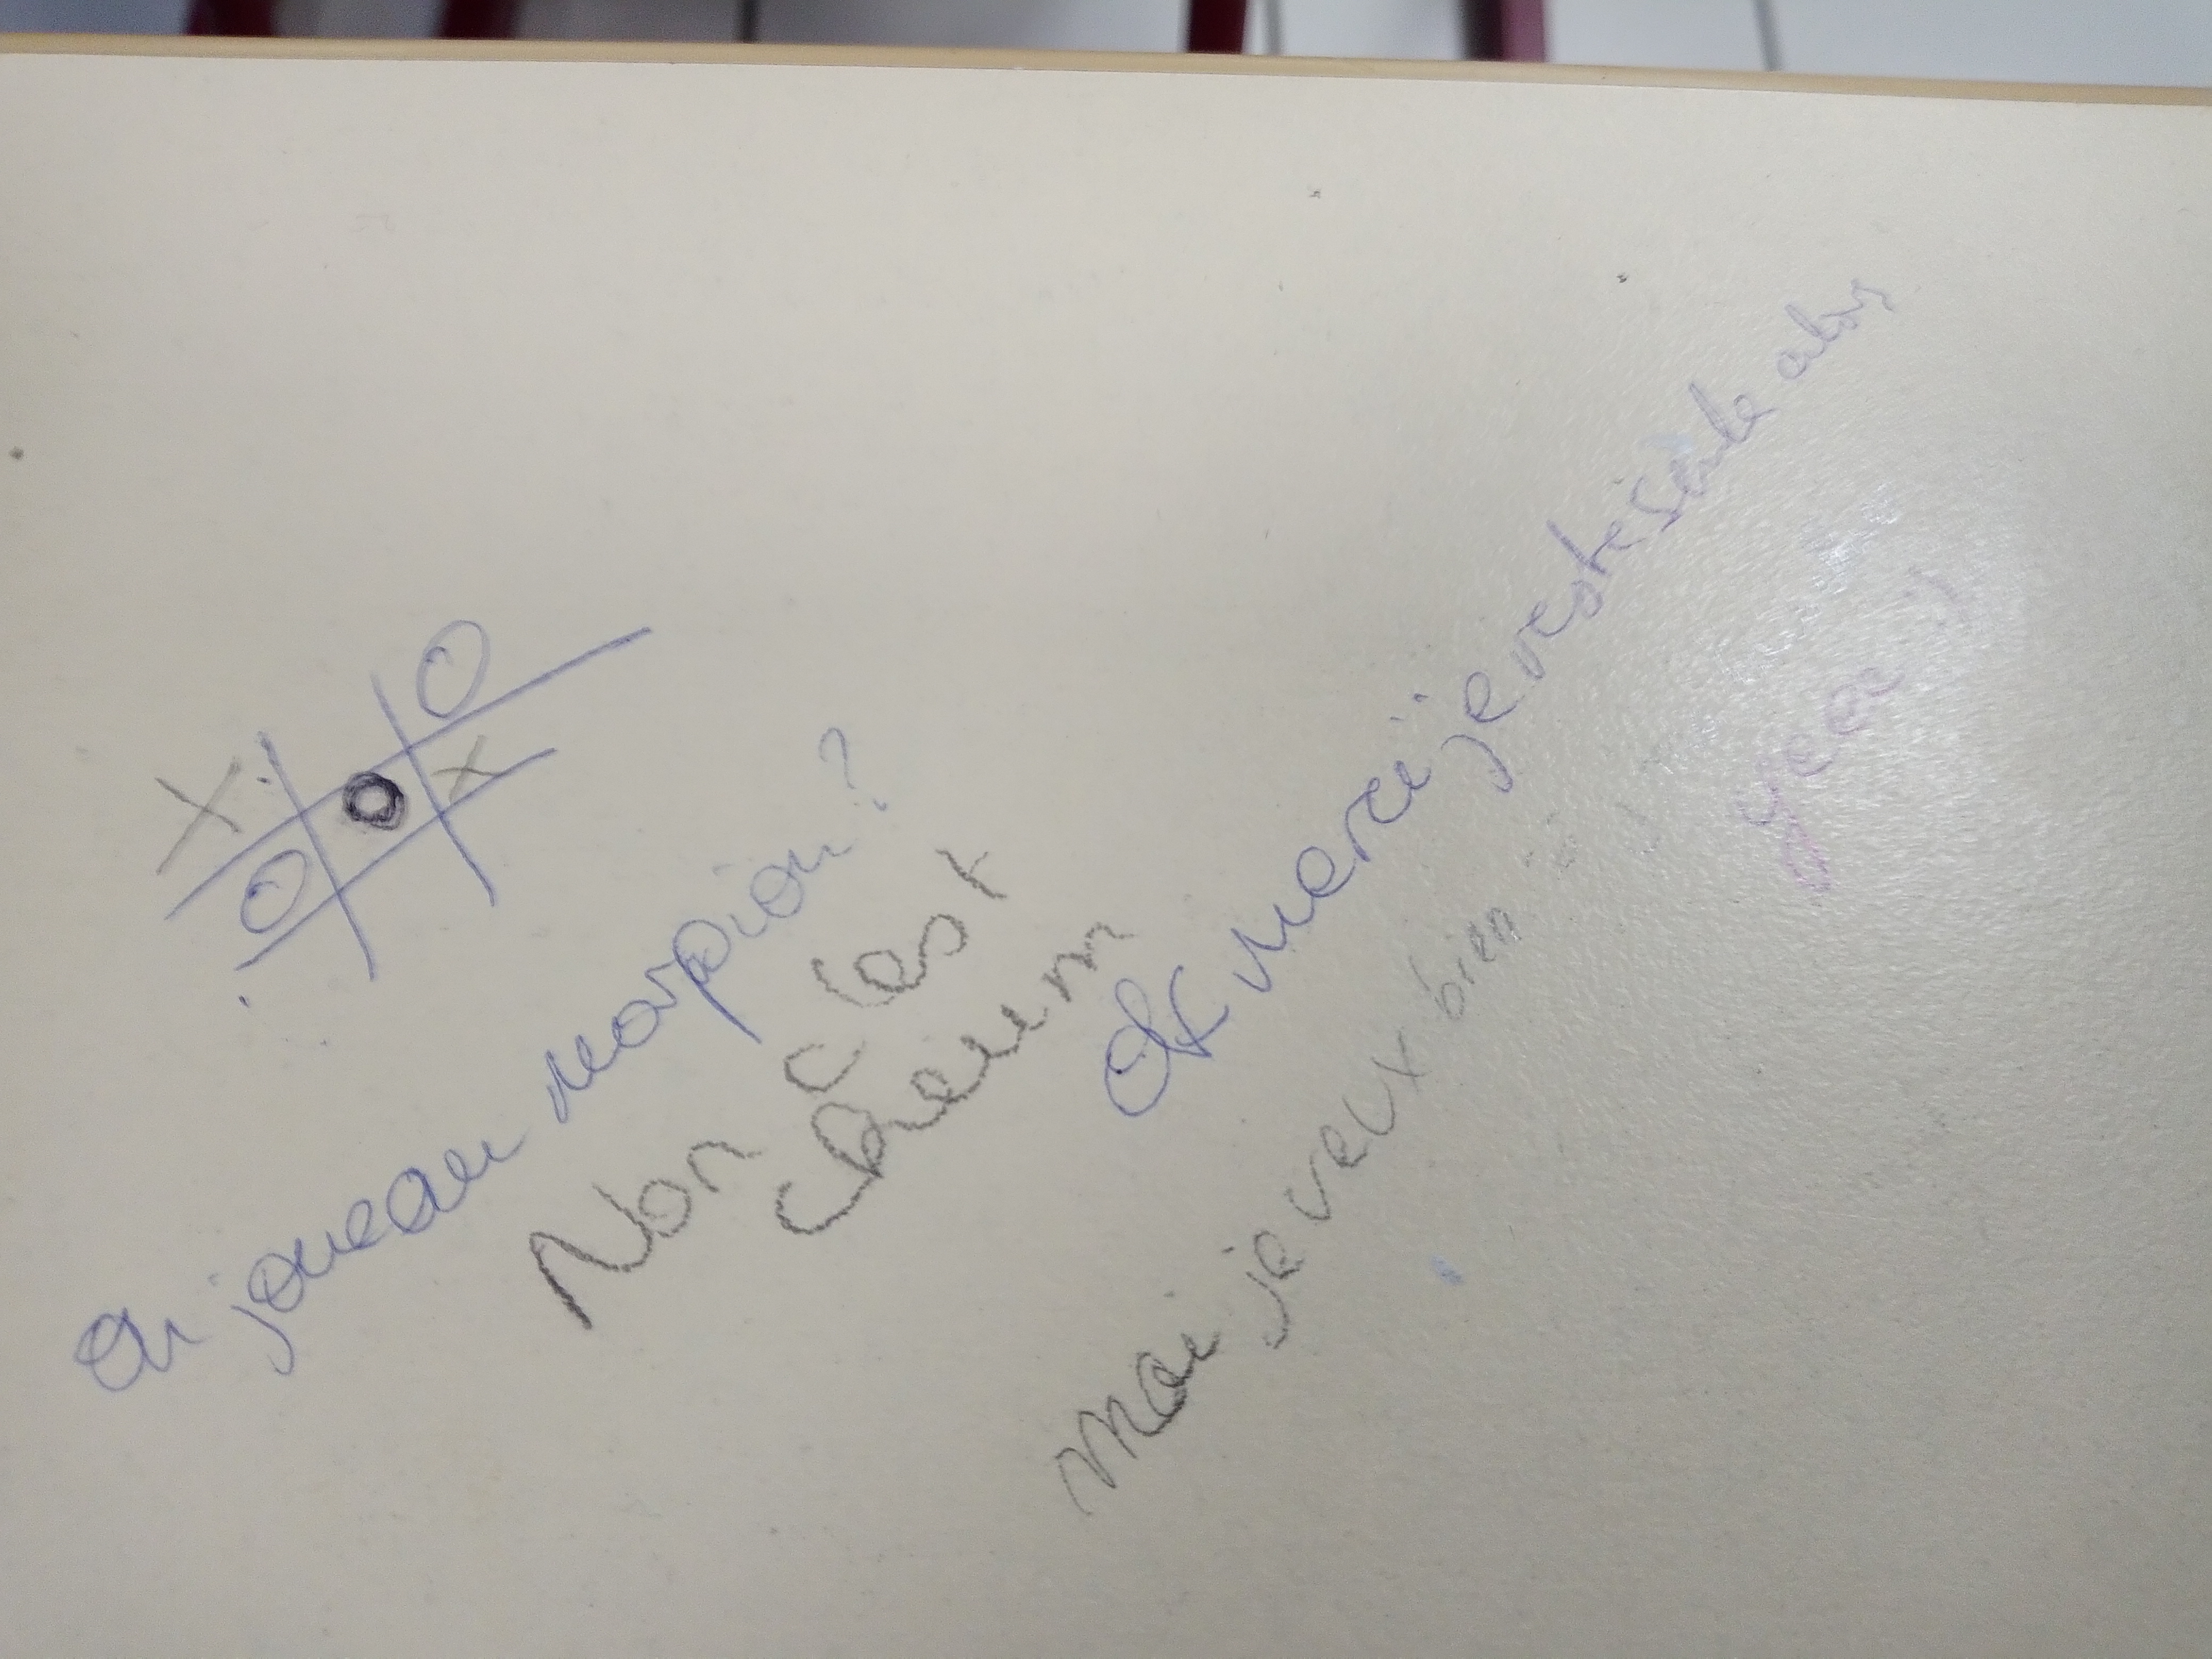 X O
O X
O
On joue au morpion ?
Non c cest
cheum
Ok merci je reste seule alors
Moi je veux bien
yeax :)